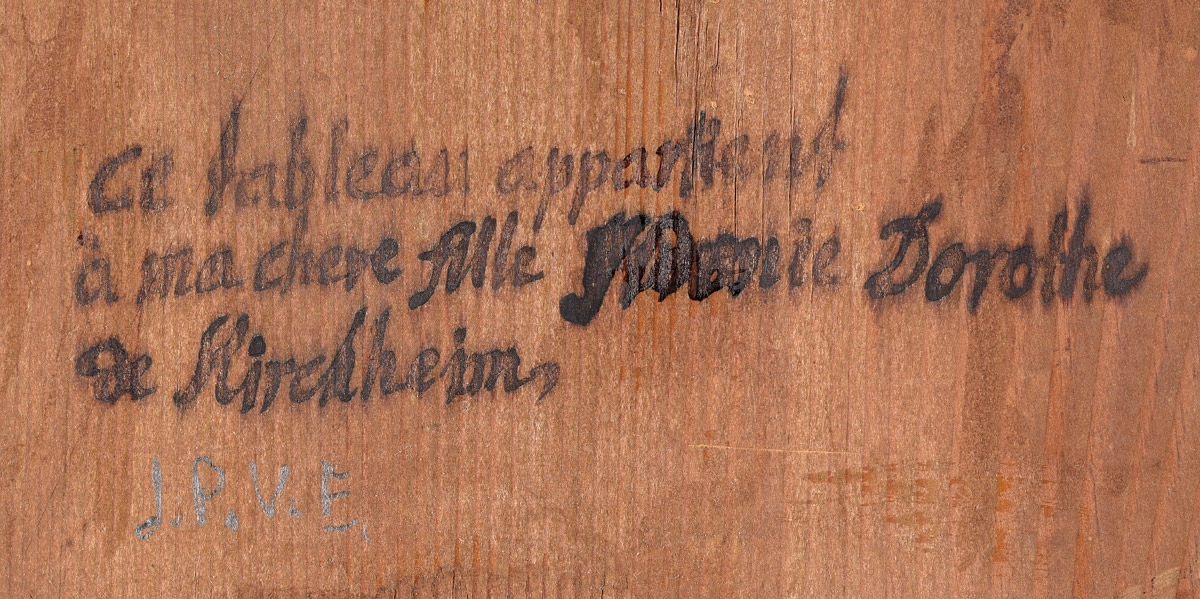 Ce tableau appartient
à ma chere fille Dorothe
de Kirckheim,
J.P.V.E.